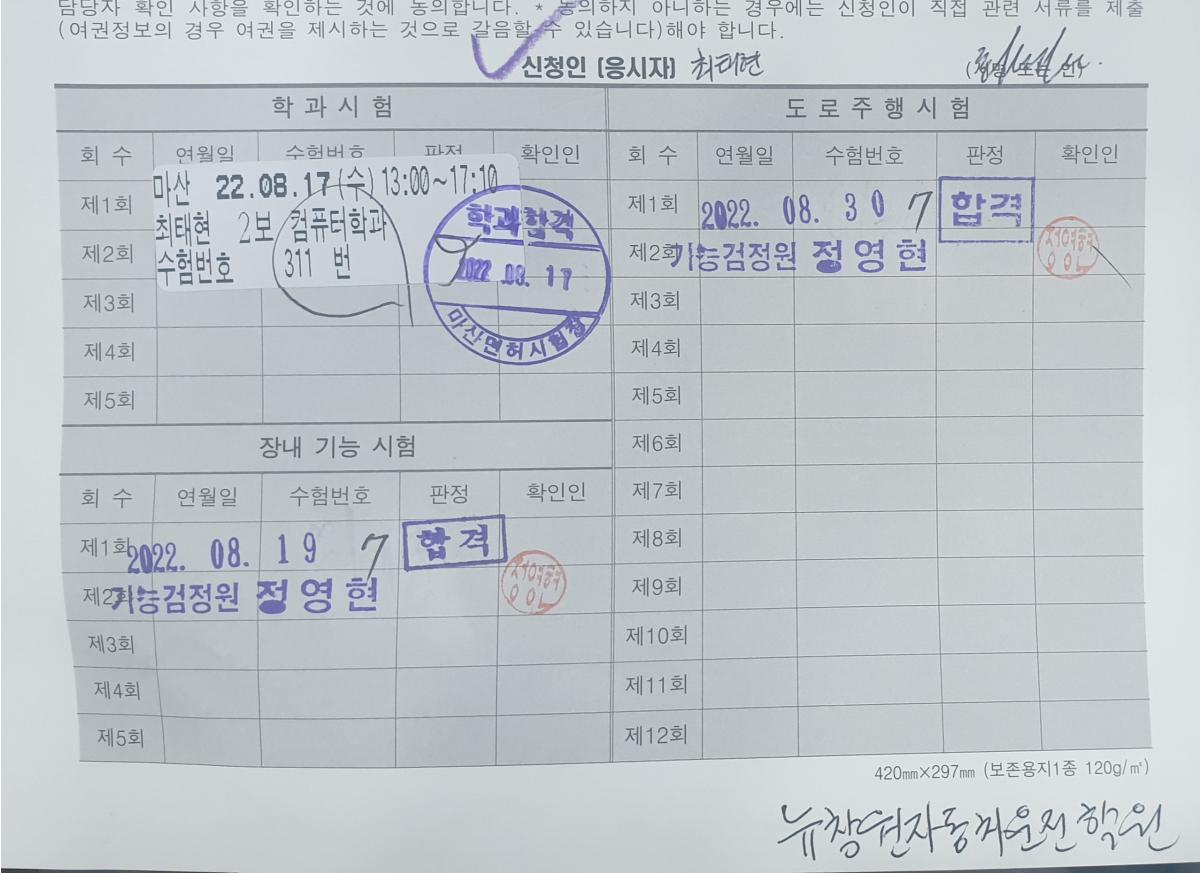 담당자 확인 사항을 확인하는 것에 동의합니다. * 동의하지 아니하는 경우에는 신청인이 직접 관련 서류를 제출
(여권정보의 경우 여권을 제시하는 것으로 갈음할 수 있습니다)해야 합니다.
신청인 (응시자) 최태현 (서명 또는 인)
학과시험
회 수 연월일 수험번호 판정 확인인
마산 22.08.17(수) 13:00~17:10
제1회
최태현 2보 컴퓨터학과
제2회
수험번호 311 번
학과합격
2022.08.17
마산면허시험장
제3회
제4회
제5회
장내 기능 시험
회 수 연월일 수험번호 판정 확인인
제1회 2022. 08. 19 7 합격
제2회 기능검정원 정영현
정영현
제3회
제4회
제5회
도로주행시험
회 수 연월일 수험번호 판정 확인인
제1회 2022. 08. 30 7 합격
제2회 기능검정원 정영현
정영현
제3회
제4회
제5회
제6회
제7회
제8회
제9회
제10회
제11회
제12회
420㎜×297㎜ (보존용지1종 120g/㎡)
뉴창원자동차운전학원